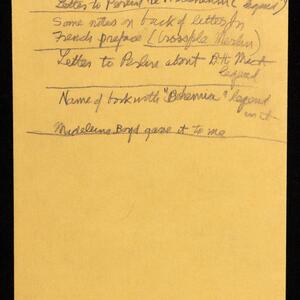 Letter to Perlès (legend)
Some notes on back of letter for
French preface (Crossfla Merlin)
Letter to Perlès about
legend
Name of book with "Bohemia" legend
in it
Madeleine Boyd gave it to me